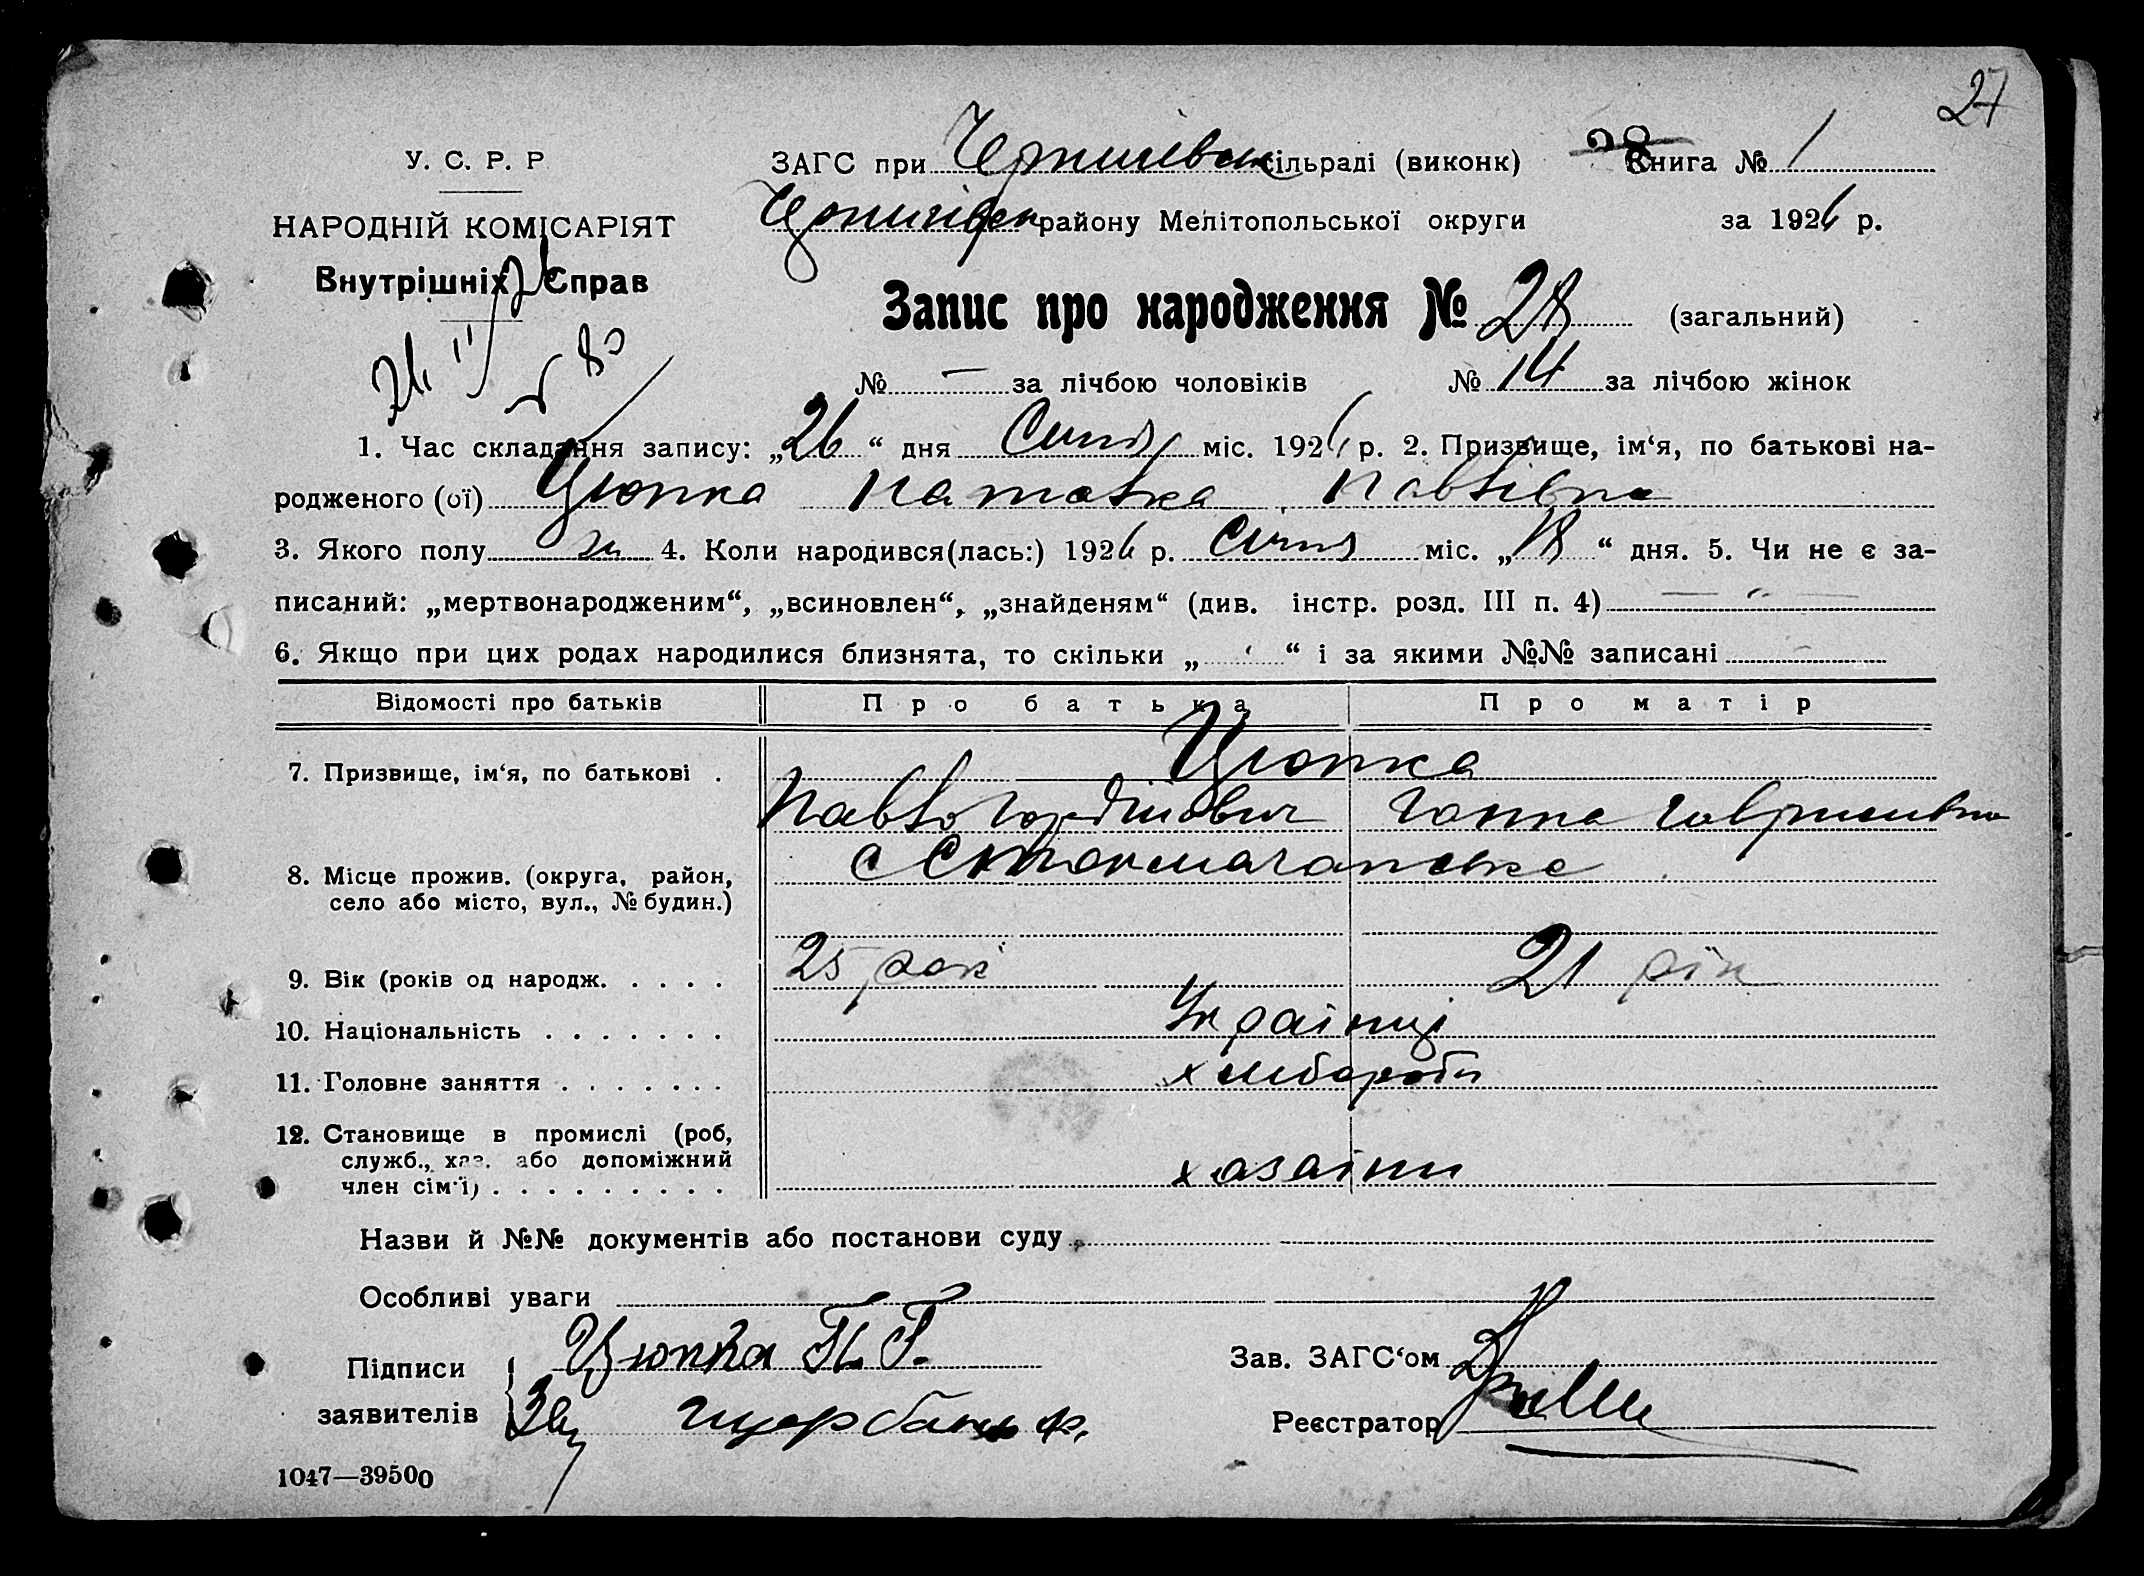 27
У. С. Р. Р
ЗАГС при Чернигівськ сільраді (виконк) 28 Книга № 1
НАРОДНІЙ КОМІСАРІЯТ
Чернигівськ району Мелітопольської округи за 1926 р.
Внутрішніх Справ
Запис про народження № 28 (загальний)
№ — за лічбою чоловіків № 14 за лічбою жінок
1. Час складання запису: „26“ дня Січня міс. 1926 р. 2. Призвище, ім‘я, по батькові на-
родженого (ої) Цюпка Наталка Павлівна
3. Якого полу ж 4. Коли народився(лась:) 1926 р. Січня міс. „18“ дня. 5. Чи не є за-
писаний: „мертвонародженим“, „всиновлен“, „знайденям“ (див. інстр. розд. III п. 4) — " —
6. Якщо при цих родах народилися близнята, то скільки „ “ і за якими №№ записані —
Відомості про батьків Про батька Про матір
7. Призвище, ім‘я, по батькові . Цюпка
Павло Гордійович Ганна Гаврилівна
8. Місце прожив. (округа, район, с
село або місто, вул., № будин.)
9. Вік (років од народж. . . . . 25 рок 21 рік
10. Національність . . . . . . . Українці
11. Головне заняття . . . . . . . хлібороби
12. Становище в промислі (роб,
служб., хаз. або допоміжний
член сім‘ї) . . . . . . . . . хазаіни
Назви й №№ документів або постанови суду
Особливі уваги
Підписи Цюпка П. Г. Зав. ЗАГС‘ом
заявителів Щербань Реєстратор
1047—39500